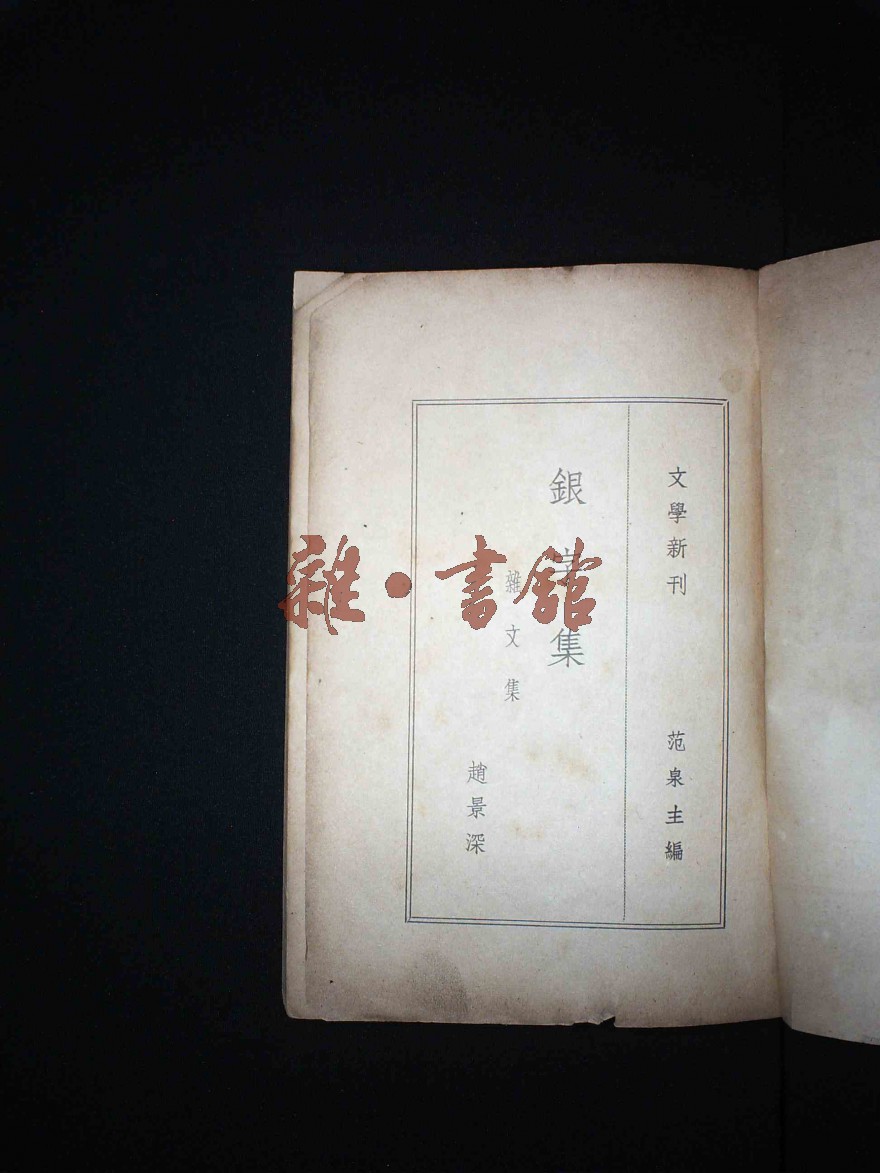 文學新刊
范泉主編
銀字集
雜文集
趙景深
雜·書館